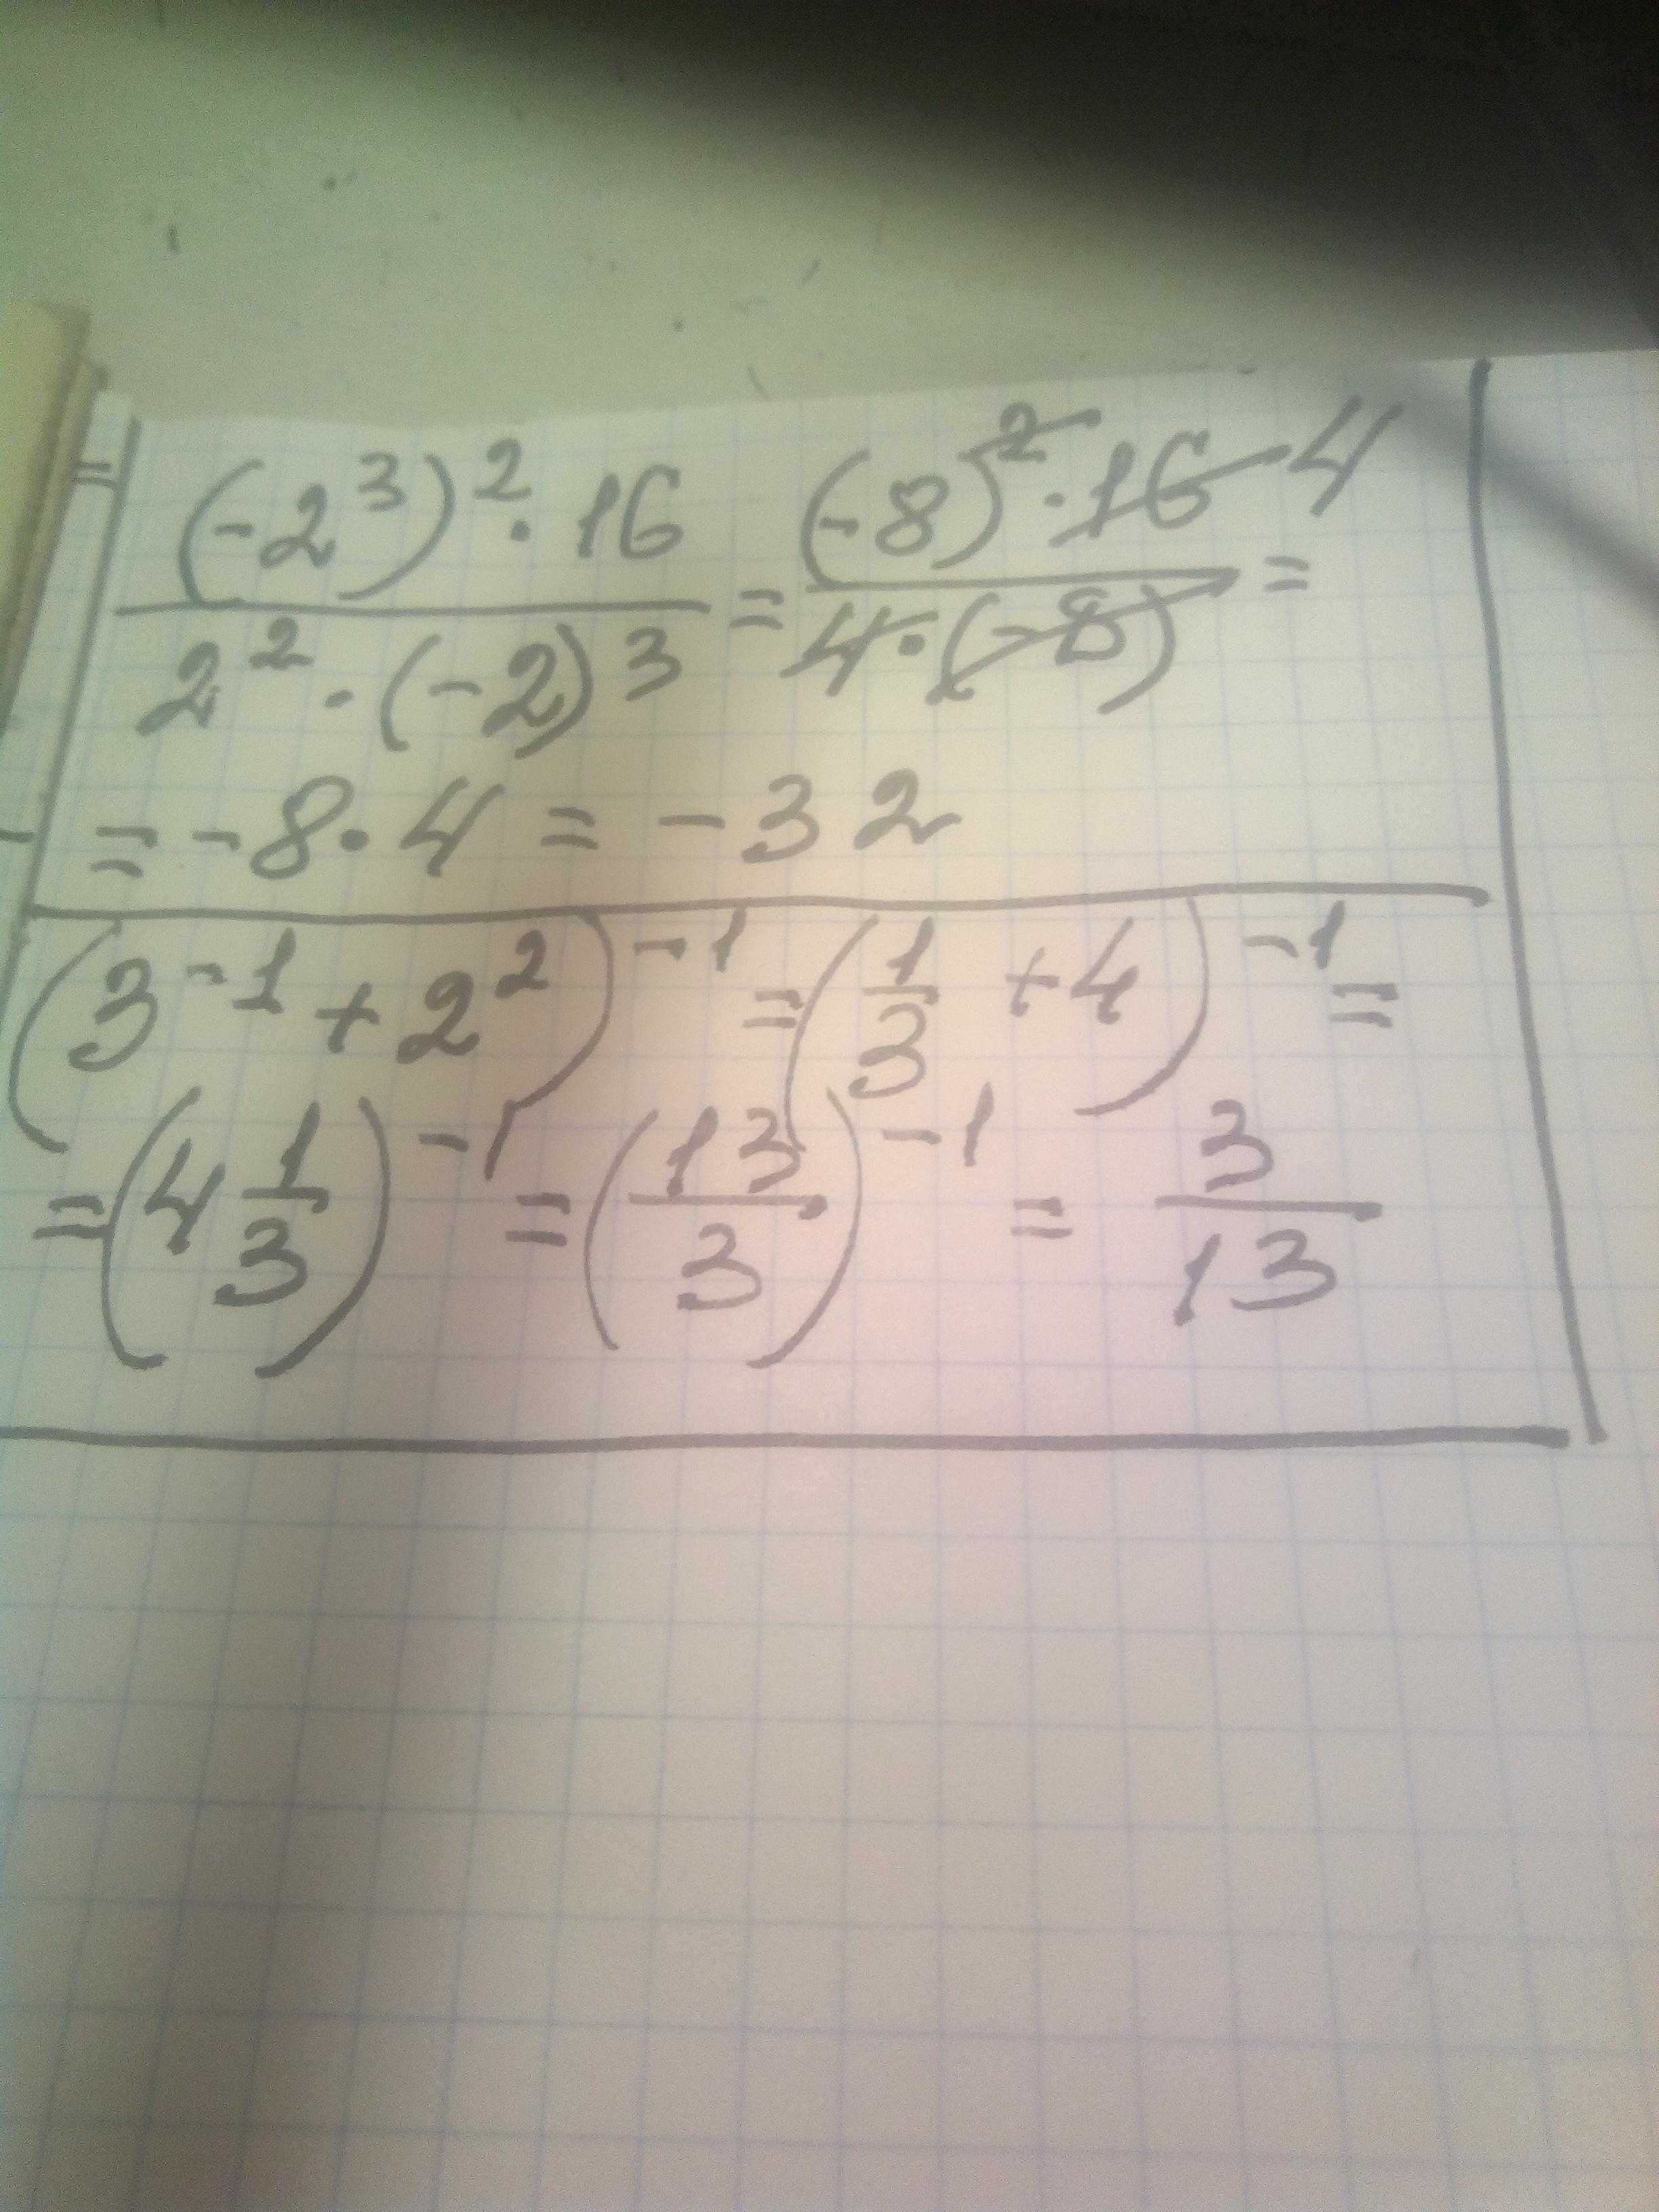 = (-2³)² · 16 / 2² · (-2)³ = (-8)² · 16 4 / 4 · (-8) =
= -8 · 4 = -32
(3⁻¹ + 2²)⁻¹ = (1/3 + 4)⁻¹ =
= (4 1/3)⁻¹ = (13/3)⁻¹ = 3/13